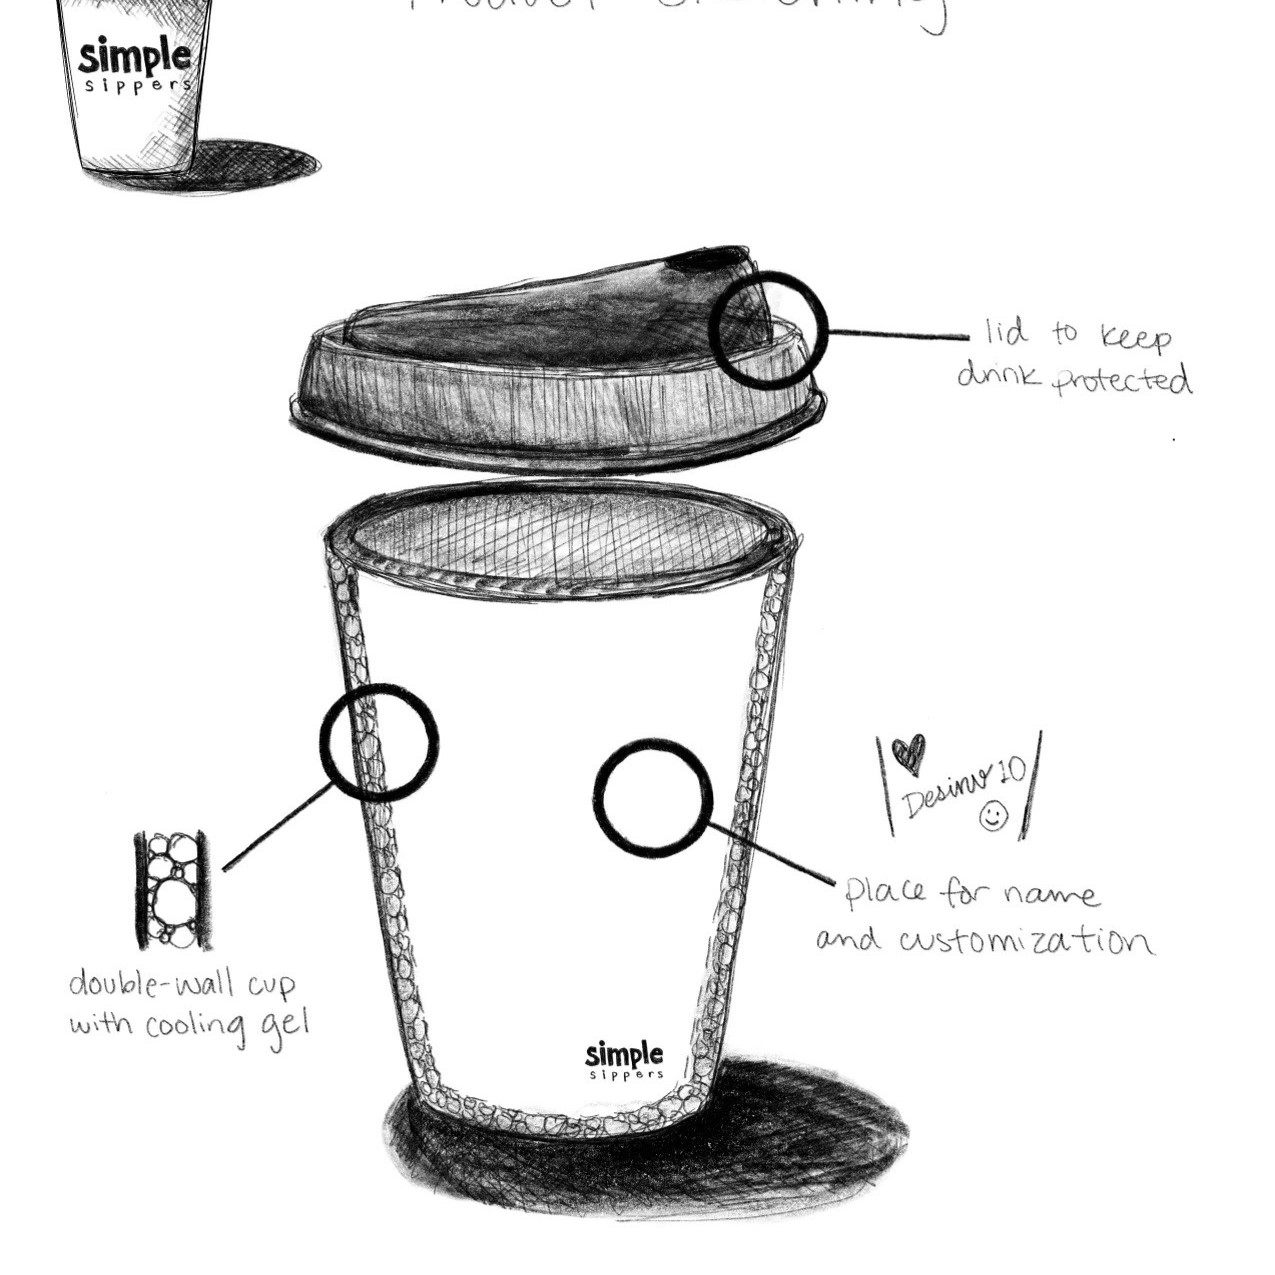 simple
sippers
lid to keep
drink protected
Desinv 10
place for name
and customization
double-wall cup
with cooling gel
simple
sippers